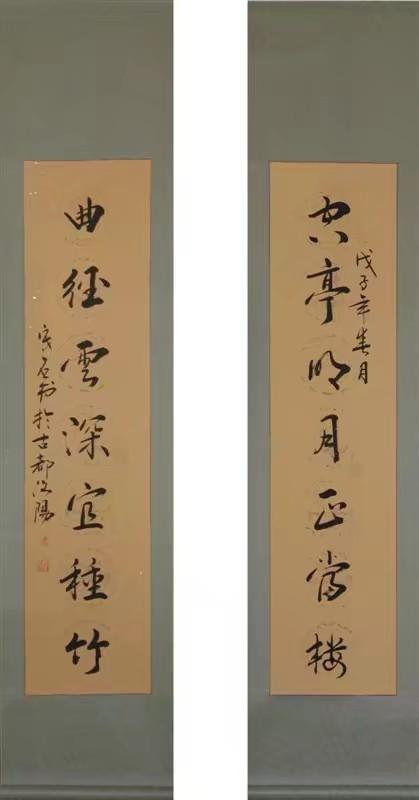 戊子年春月
空亭明月正當楼
曲徑雲深宜種竹
石书於古都洛陽